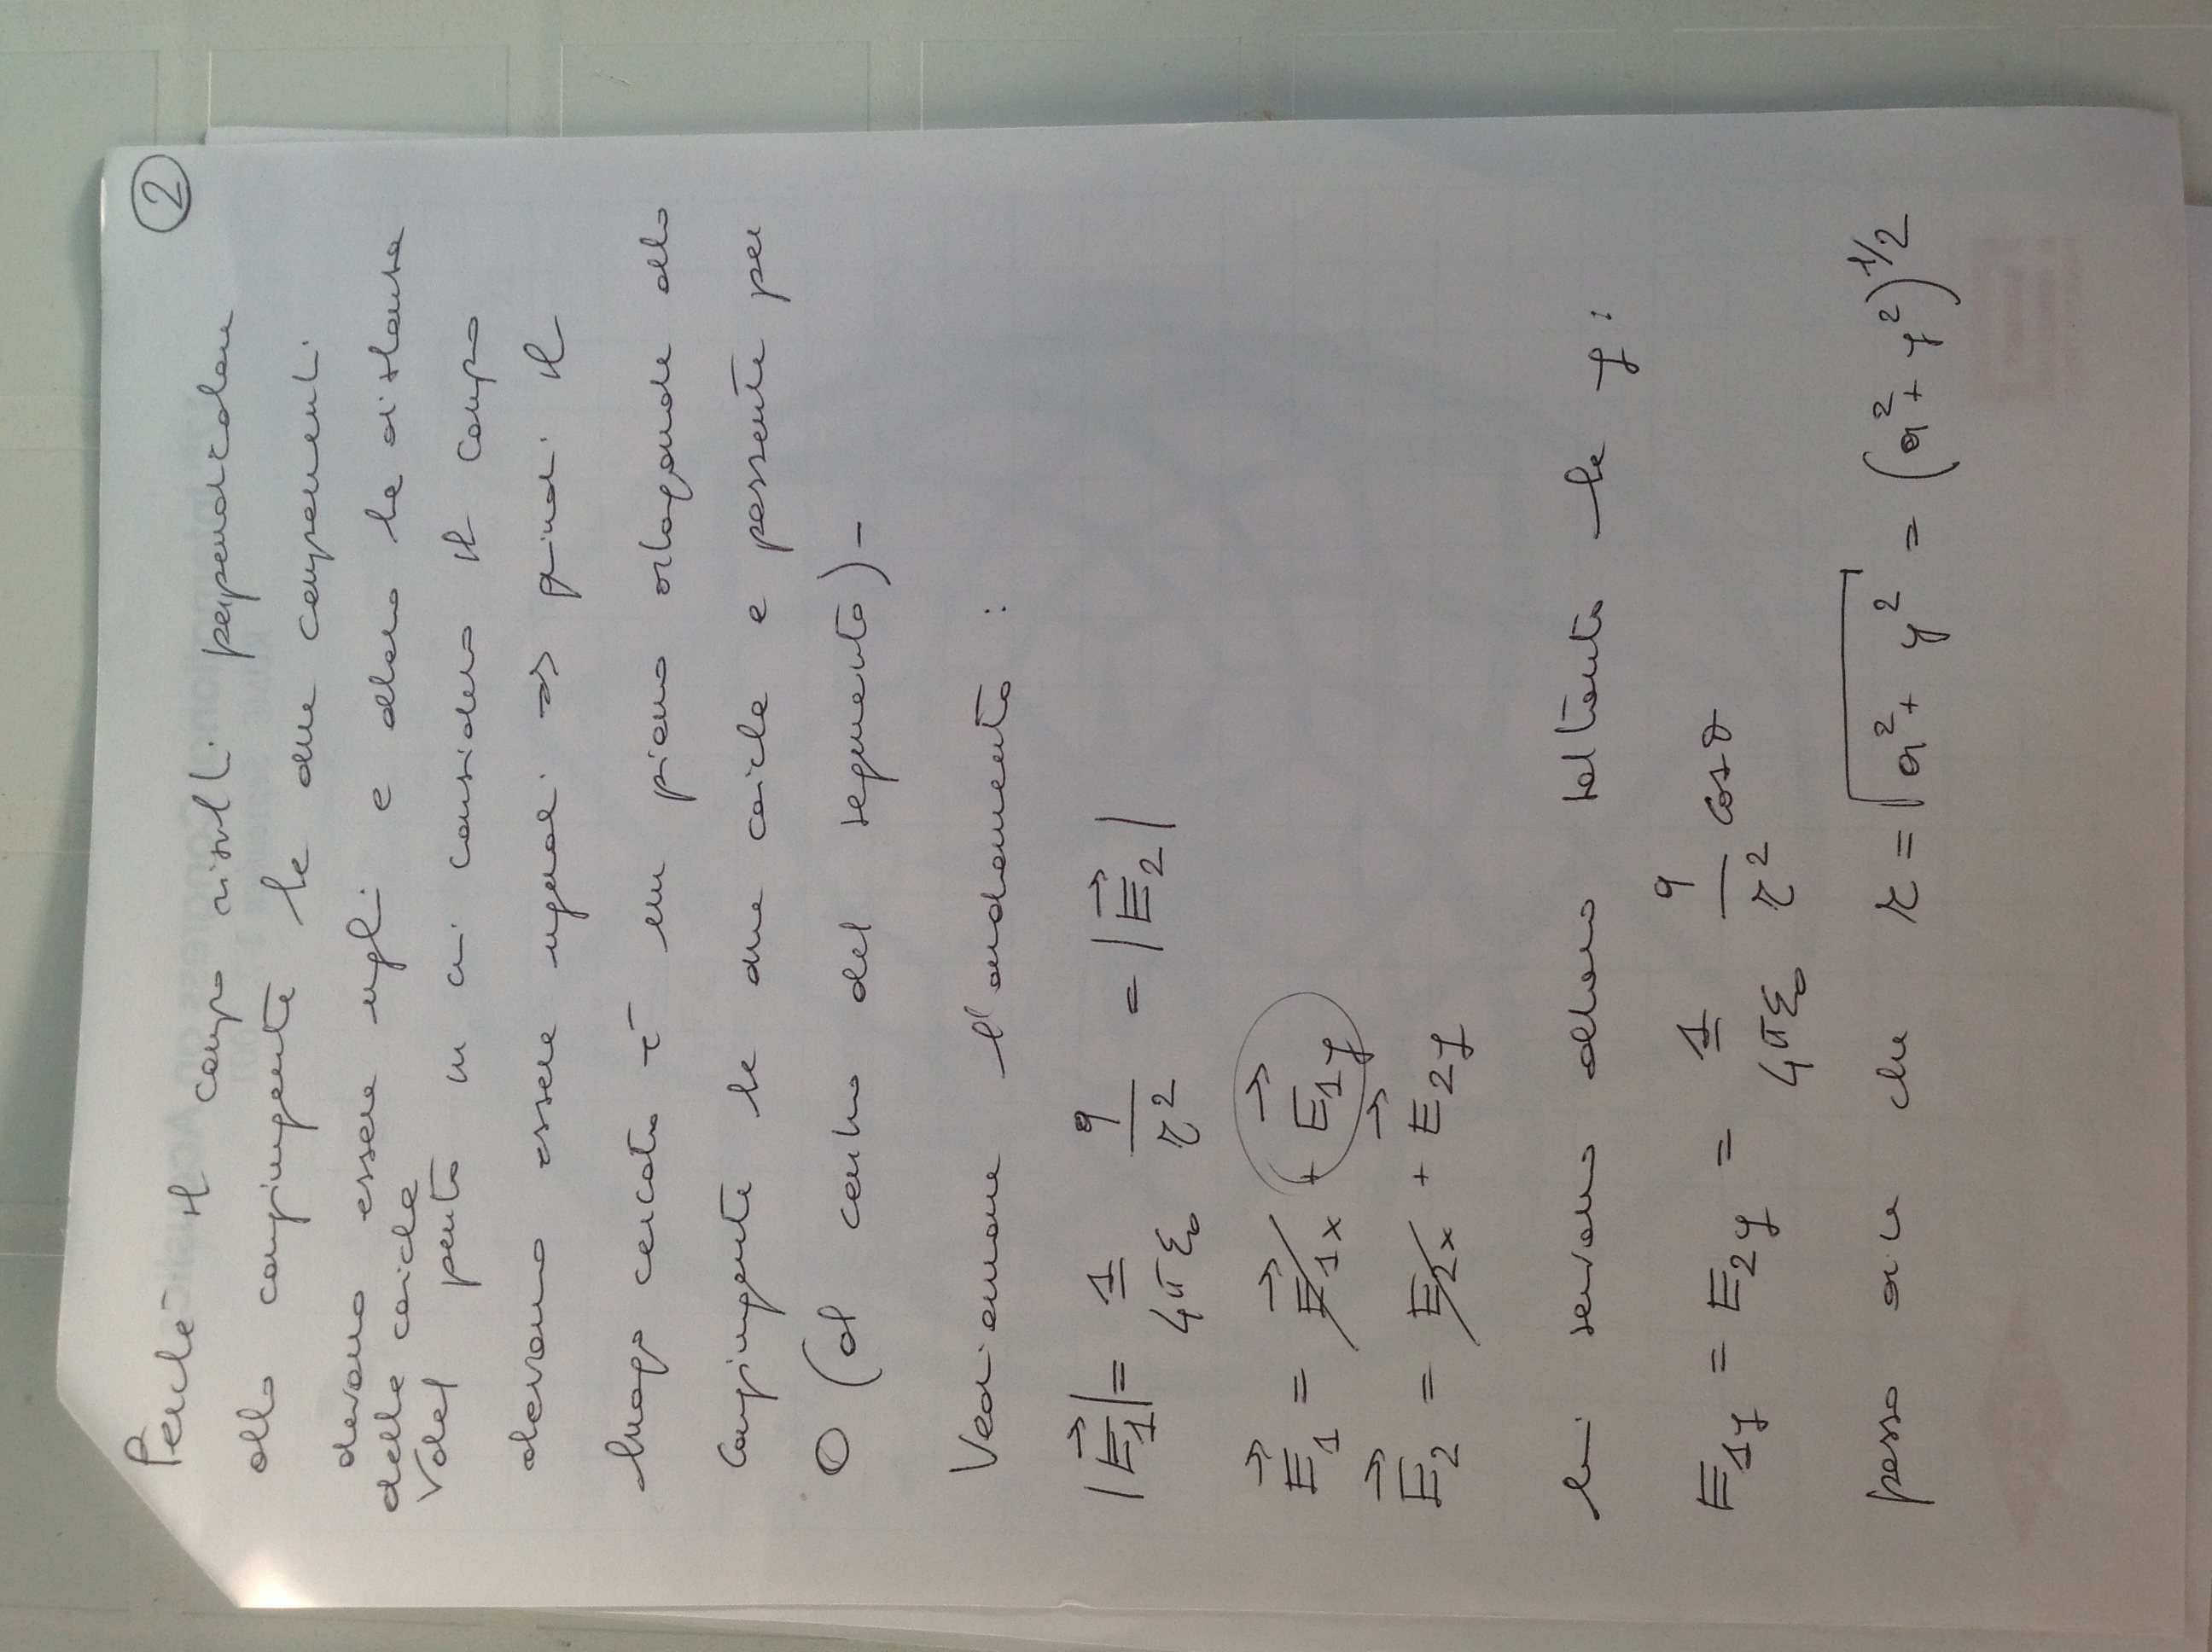 2
Perché il campo risulti perpendicolare
alla congiungente le due componenti
devono essere ugli e allora le distanze
delle cariche
Vdel punto in cui considero il campo
devono essere uguali => quindi il
luogo cercato è un piano ortogonale alla
congiungente le due cariche e passante per
O (al centro del segmento) -
Vediamone l'andamento :
|E⃗₁| = 1/4πε₀ q/r² = |E⃗₂|
E⃗₁ = E⃗₁ₓ + E⃗₁y
E⃗₂ = E₂ₓ + E⃗₂y
mi servono allora soltanto le y :
E₁y = E₂y = 1/4πε₀ q/r² cosθ
posso dire che r = √(a² + y²) = (a² + y²)^1/2